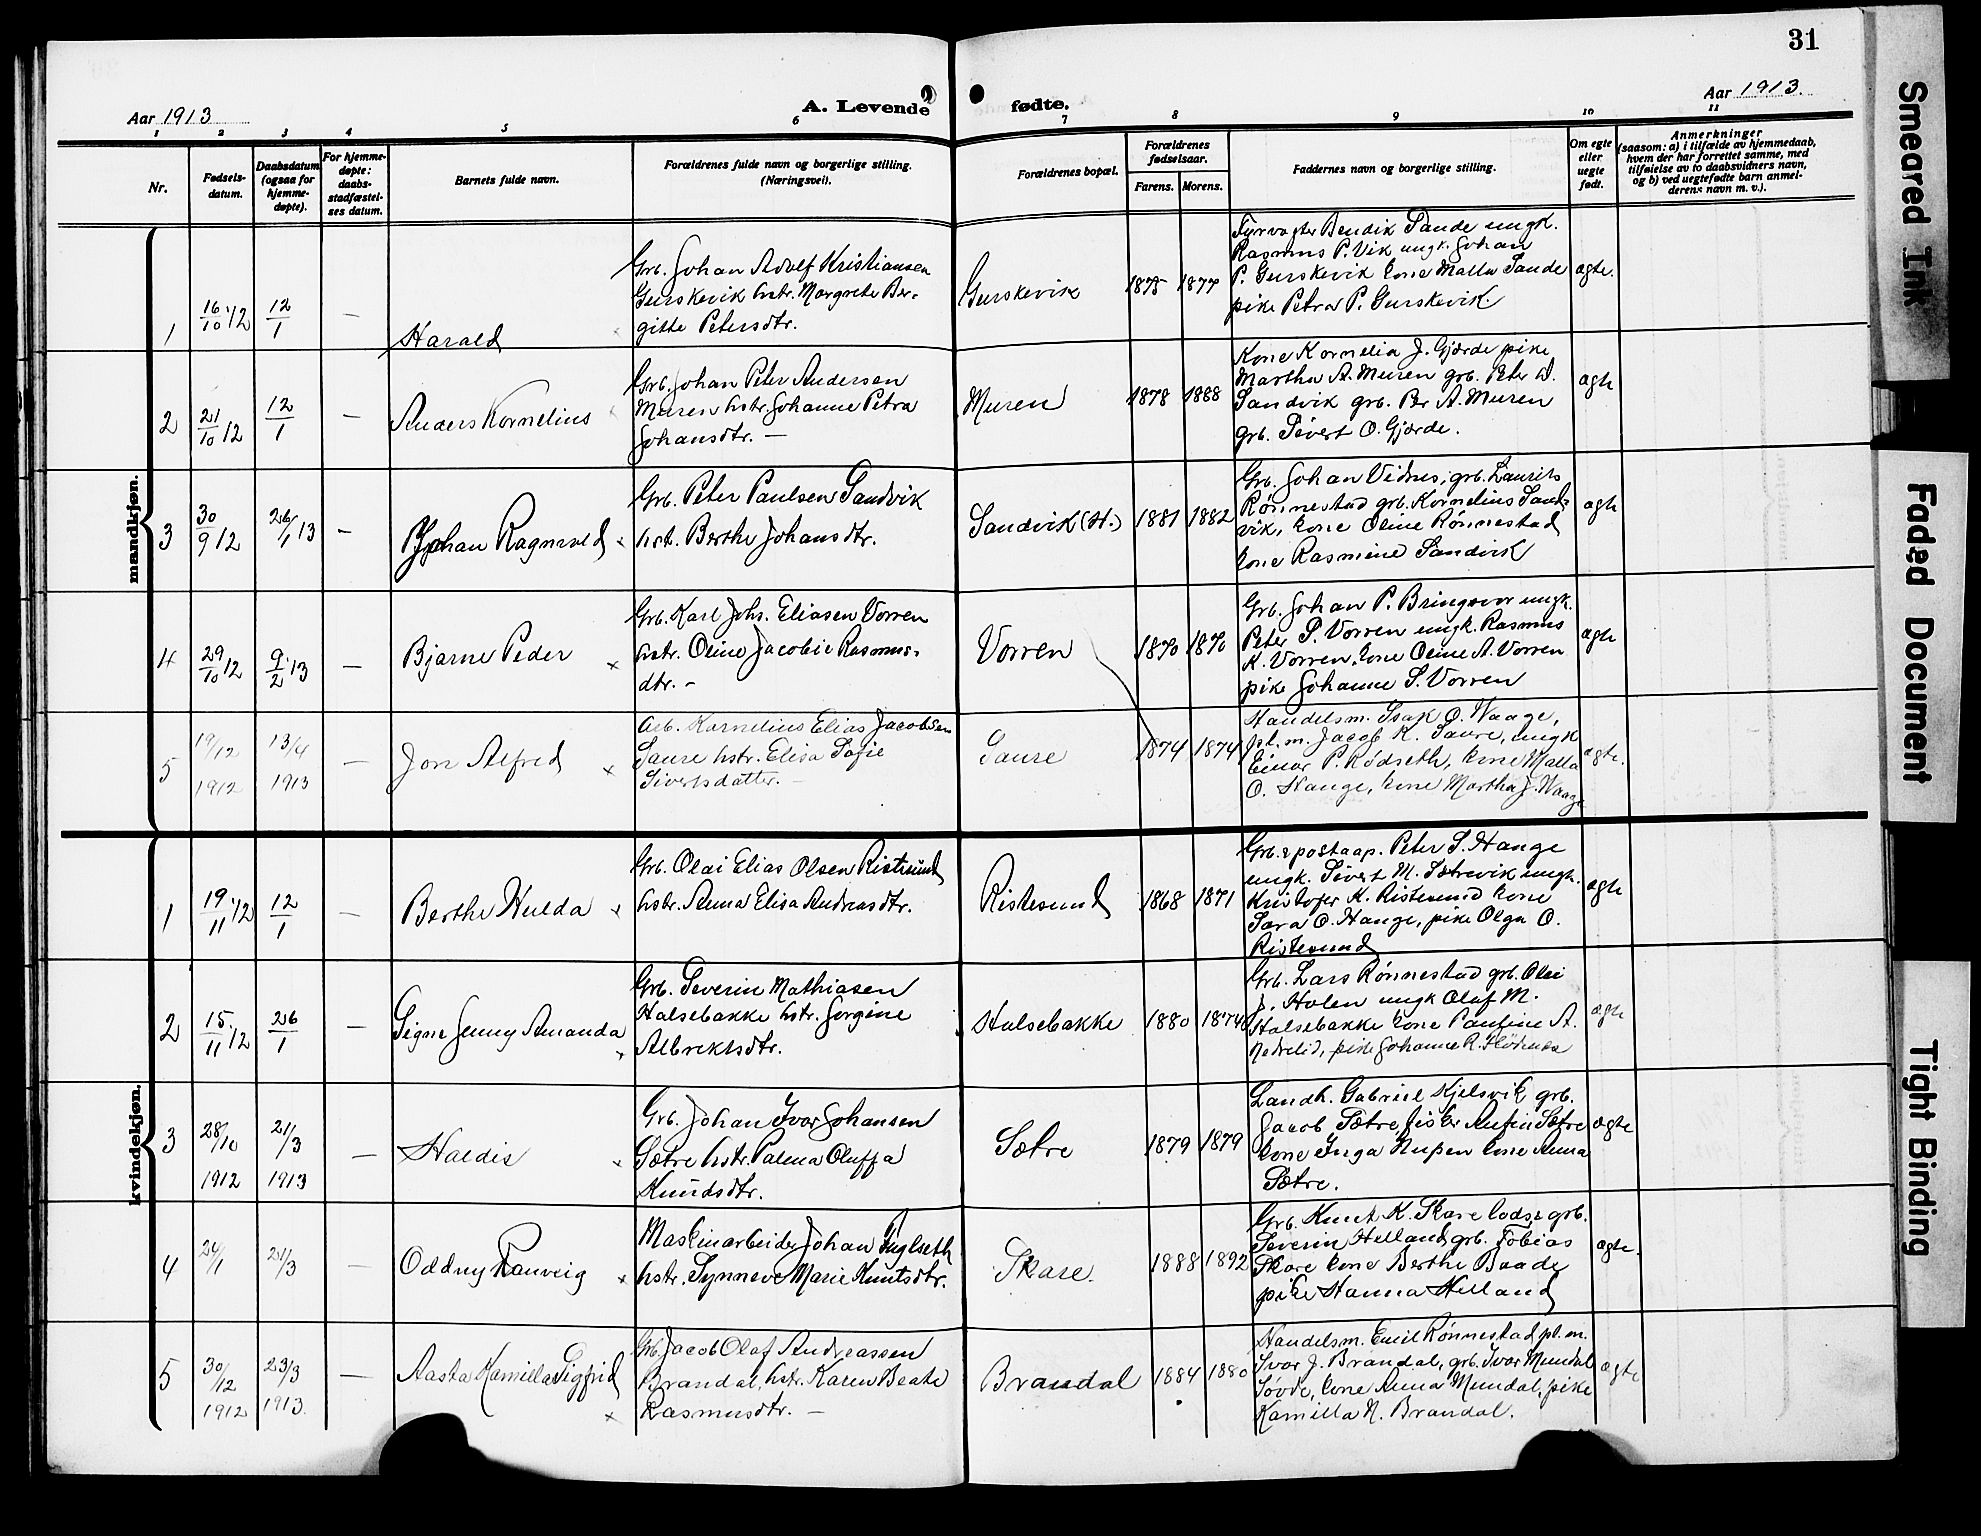 31
Aar 1913
A. Levende fødte.
Aar 1913.
1 2 3 4 5 6 7 8 9 10 11
Nr.
Fødsels-
datum.
Daabsdatum
(ogsaa for
hjemme-
døpte).
For hjemme-
døpte:
daabs-
stadfæstel-
ses datum.
Barnets fulde navn.
Forældrenes fulde navn og borgerlige stilling.
(Næringsvei).
Forældrenes bopæl.
Forældrenes
fødselsaar.
Farens. Morens.
Faddernes navn og borgerlige stilling.
Om egte
eller
uegte
født.
Anmerkninger
(saasom: a) i tilfælde av hjemmedaab,
hvem der har forrettet samme, med
tilføielse av to daabsvidners navn,
og b) ved uegtefødte barn anmel-
derens navn m. v.).
mandkjøn.
1
16/10 12
12/1
—
Harald
Grb. Johan Adolf Kristiansen
Gurskevik hstr. Margrete Ber-
gitte Petersdtr.
Gurskevik
1875 1877
Fyrvogter Bendik Sande ungk.
Rasmus P. Vik ungk. Johan
P. Gurskevik kone Malla Sande
pike Petra P. Gurskevik.
ægte.
2
21/10 12
12/1
—
Anders Kornelius
Grb. Johan Peter Andersen
Muren hstr. Johanne Petra
Johansdtr. —
Muren
1878 1888
Kone Kornelia J. Gjærde pike
Martha A. Muren grb. Peter A.
Sandvik grb. Per A. Muren
grb. Sivert O. Gjærde.
ægte
3
30/9 12
26/1 13
—
Johan Ragnvald
Grb. Peter Paulsen Sandvik
hstr. Berthe Johansdtr.
Sandvik (H.)
1881 1882
Grb. Johan Vidnes, grb. Laurits
Rønnestad grb. Kornelius Sand-
vik, kone Oline Rønnestad
kone Rasmine Sandvik
ægte
4
29/10 12
9/2 13
—
Bjarne Peder
Grb. Karl Johs. Eliasen Vorren
hstr. Oline Jacobie Rasmus-
dtr. -
Vorren
1870 1870
Grb. Johan P. Bringsvor ungk.
Peter S. Vorren ungk. Rasmus
K. Vorren, kone Oline A. Vorren
pike Johanne S. Vorren
ægte
5
19/12
1912
13/4
1913
—
Jon Alfred
Arb. Kornelius Elias Jacobsen
Saure hstr. Elisa Sofie
Sivertsdatter. —
Saure
1874 1874
Handelsm. Isak O. Waage,
pl. m. Jacob K. Saure, ungk
Einar P. Rødseth, kone Malla
O. Hauge, kone Martha J. Waage
ægte.
kvindekjøn.
1
19/11 12
12/1
—
Berthe Hulda
Grb. Olai Elias Olsen Ristesund
hstr. Anna Elisa Andreasdtr.
Ristesund
1868 1871
Grb. & postaap. Peter S. Hauge
ungk. Sivert M. Sætrevik ungk.
Kristofer K. Ristesund kone
Sara O. Hauge, pike Olga O.
Ristesund
ægte
2
15/11 12
26/1
—
Signe Jenny Amanda
Grb. Severin Mathiasen
Halsebakke hstr. Jorgine
Albrektsdtr.
Halsebakke
1880 1874
Grb. Lars Rønnestad grb. Olai
J. Holen ungk Olaf M.
Halsebakke kone Pauline A.
Nedrelid, pike Johanne R. Flødnes
ægte
3
28/10
1912
21/3
1913
—
Haldis
Grb. Johan Ivar Johansen
Sætre hstr. Palma Oluffa
Knudsdtr.
Sætre
1879 1879
Landh. Gabriel Kjelsvik grb.
Jacob Sætre, fisker Anfin Sætre
kone Inga Nupen kone Anna
Sætre.
ægte
4
24/1
21/3
—
Oddny Ranveig
Maskinarbeider Johan Fuglseth
hstr. Synneve Marie Knutsdtr.
Skare.
1888 1892
Grb. Knut K. Skare lods & grb.
Severin Helland grb. Tobias
Skare kone Berthe Baade
pike Hanna Helland
ægte.
5
30/12
1912
23/3
1913.
—
Aasta Kamilla Sigfrid
Grb. Jacob Olaf Andreassen
Brandal, hstr. Karen Beate
Rasmusdtr. —
Brandal
1884 1880
Handelsm. Emil Rønnestad pl. m.
Ivar J. Brandal, grb. Ivar Mundal
Søvde, kone Anna Mundal, pike
Kamilla N. Brandal.
ægte
Smeared Ink
Faded Document
Tight Binding